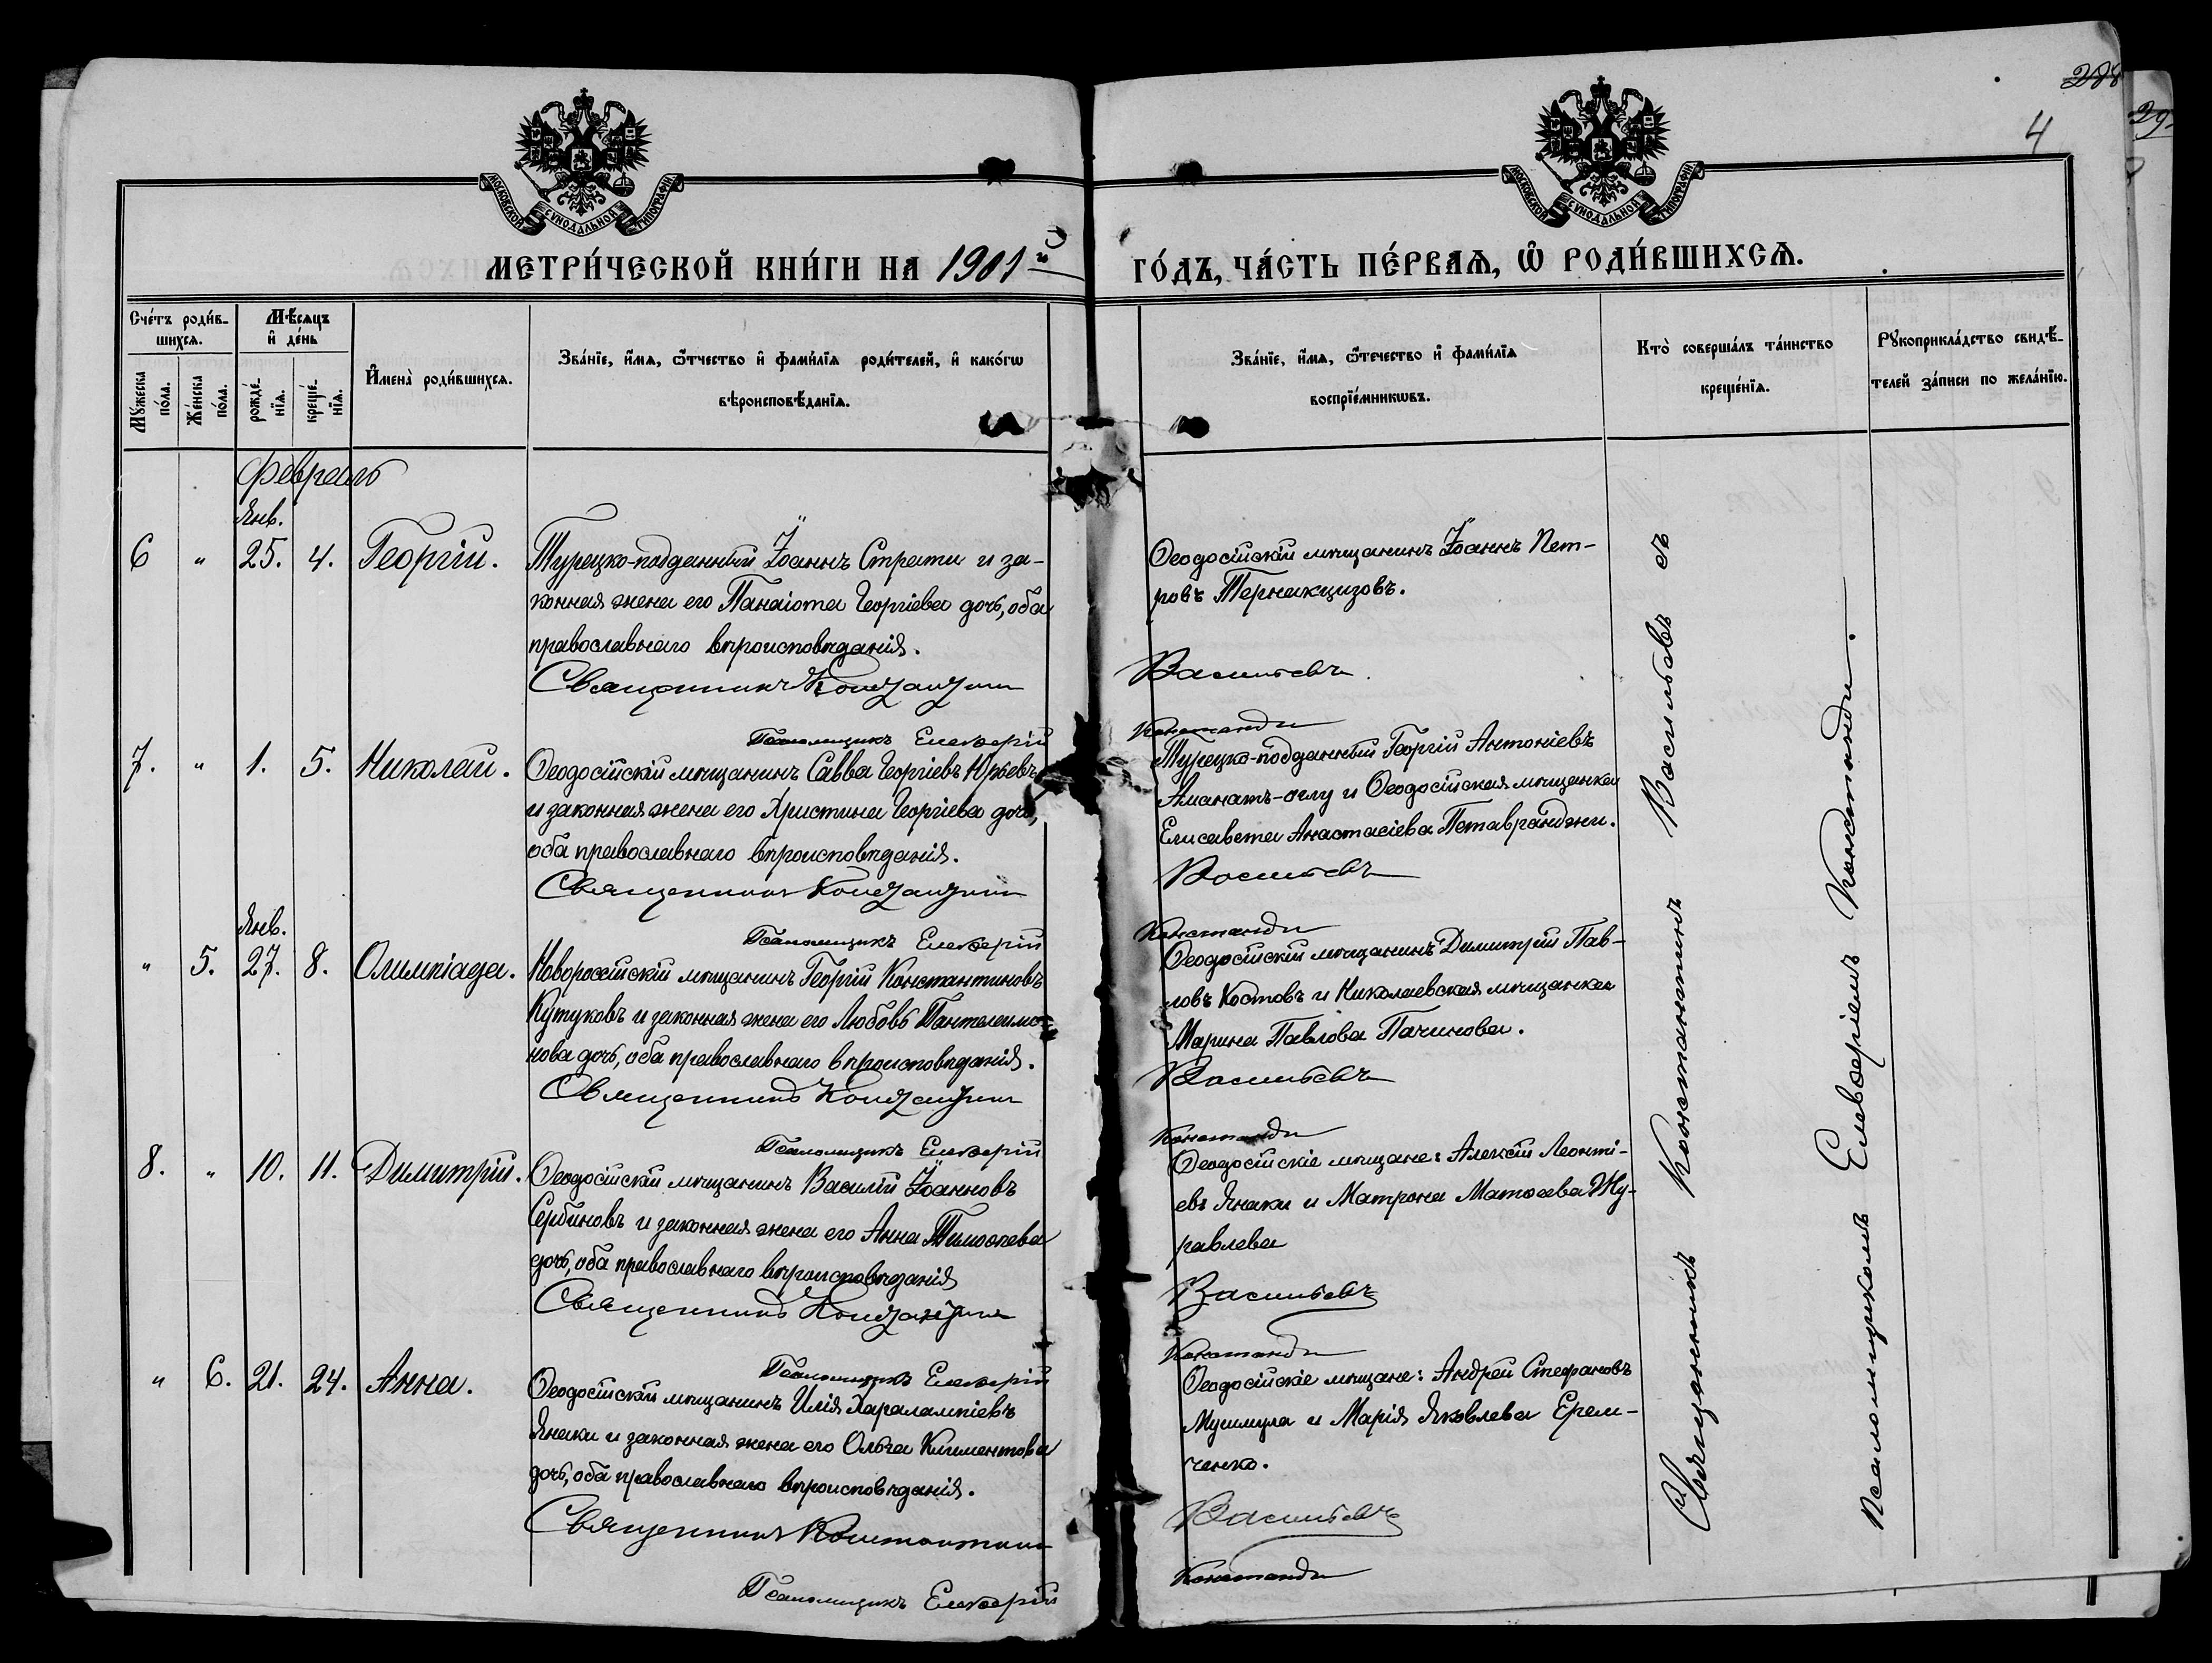 288
29
4
МОСКОВСКОЙ СѴНОДАЛЬНОЙ ТИПОГРАФІИ
МОСКОВСКОЙ СѴНОДАЛЬНОЙ ТИПОГРАФІИ
МЕТРИ́ЧЕСКОЙ КНИ́ГИ НА 1901й ГО́ДЪ, ЧА́СТЬ ПЕ́РВАѦ, Ѽ РОДИ́ВШИХСѦ.
Сче́тъ роди́в-
шихсѧ.
Мꙋ́жеска
по́ла.
Же́нска
по́ла.
Мѣ́сѧцъ
и҆ де́нь
рожде́-
нїѧ.
креще́-
нїѧ.
И҆мена̀ роди́вшихсѧ.
Зва́нїе, и҆́мѧ, ѻ҆́тчество и҆ фами́лїѧ роди́телей, и҆ како́гѡ
вѣроисповѣ́данїѧ.
Зва́нїе, и҆́мѧ, ѻ҆те́чество и҆ фами́лїѧ
воспрїе́мникѡвъ.
Кто̀ соверша́лъ та́инство
креще́нїѧ.
Рꙋкоприкла́дство свидѣ́-
телей за́писи по жела́нїю.
Февраль
Янв.
6 " 25. 4. Георгій. Турецко-подданный Іоаннъ Страти и за-
конная жена его Панаіота Георгіева дочь, оба
православнаго вѣроисповѣданія.
Священникъ Константинъ Васильевъ
Ѳеодосійскій мѣщанинъ Іоаннъ Пет-
ровъ Тернакцизовъ.
Псаломщикъ Елевѳерій Константи
7. " 1. 5. Николай. Ѳеодосійскій мѣщанинъ Савва Георгіевъ Юрьевъ
и законная жена его Христина Георгіева дочь,
оба православнаго вѣроисповѣданія.
Священникъ Константинъ Васильевъ
Турецко-подданный Георгій Антоніевъ
Аманатъ-оглу и Ѳеодосійская мѣщанка
Елисавета Анастасіева Потавранджи.
Псаломщикъ Елевѳерій Константи
Янв.
" 5. 27. 8. Олимпіада. Новороссійскій мѣщанинъ Георгій Константиновъ
Кутуковъ и законная жена его Любовь Пантелеимо-
нова дочь, оба православнаго вѣроисповѣданія.
Священникъ Константинъ Васильевъ
Ѳеодосійскій мѣщанинъ Димитрій Пав-
ловъ Костовъ и Николаевская мѣщанка
Марина Павлова Пачинова.
Псаломщикъ Елевѳерій Константи
8. " 10. 11. Димитрій. Ѳеодосійскій мѣщанинъ Василій Іоанновъ
Сербиновъ и законная жена его Анна Тимоѳеева
дочь, оба православнаго вѣроисповѣданія
Священникъ Константинъ Васильевъ
Ѳеодосійскіе мѣщане: Алексій Леонті-
евъ Янаки и Матрона Матѳеева Жу-
равлева
Псаломщикъ Елевѳерій Константи
" 6. 21. 24. Анна. Ѳеодосійскій мѣщанинъ Илія Харалампіевъ
Янаки и законная жена его Ольга Климентова
дочь, оба православнаго вѣроисповѣданія.
Священникъ Константинъ Васильевъ
Ѳеодосійскіе мѣщане: Андрей Стефановъ
Мушмула и Марія Яковлева Ерем-
ченко.
Псаломщикъ Елевѳерій Константи
Священникъ Константинъ Васильевъ съ
Псаломщикомъ Елевѳеріемъ Константи.